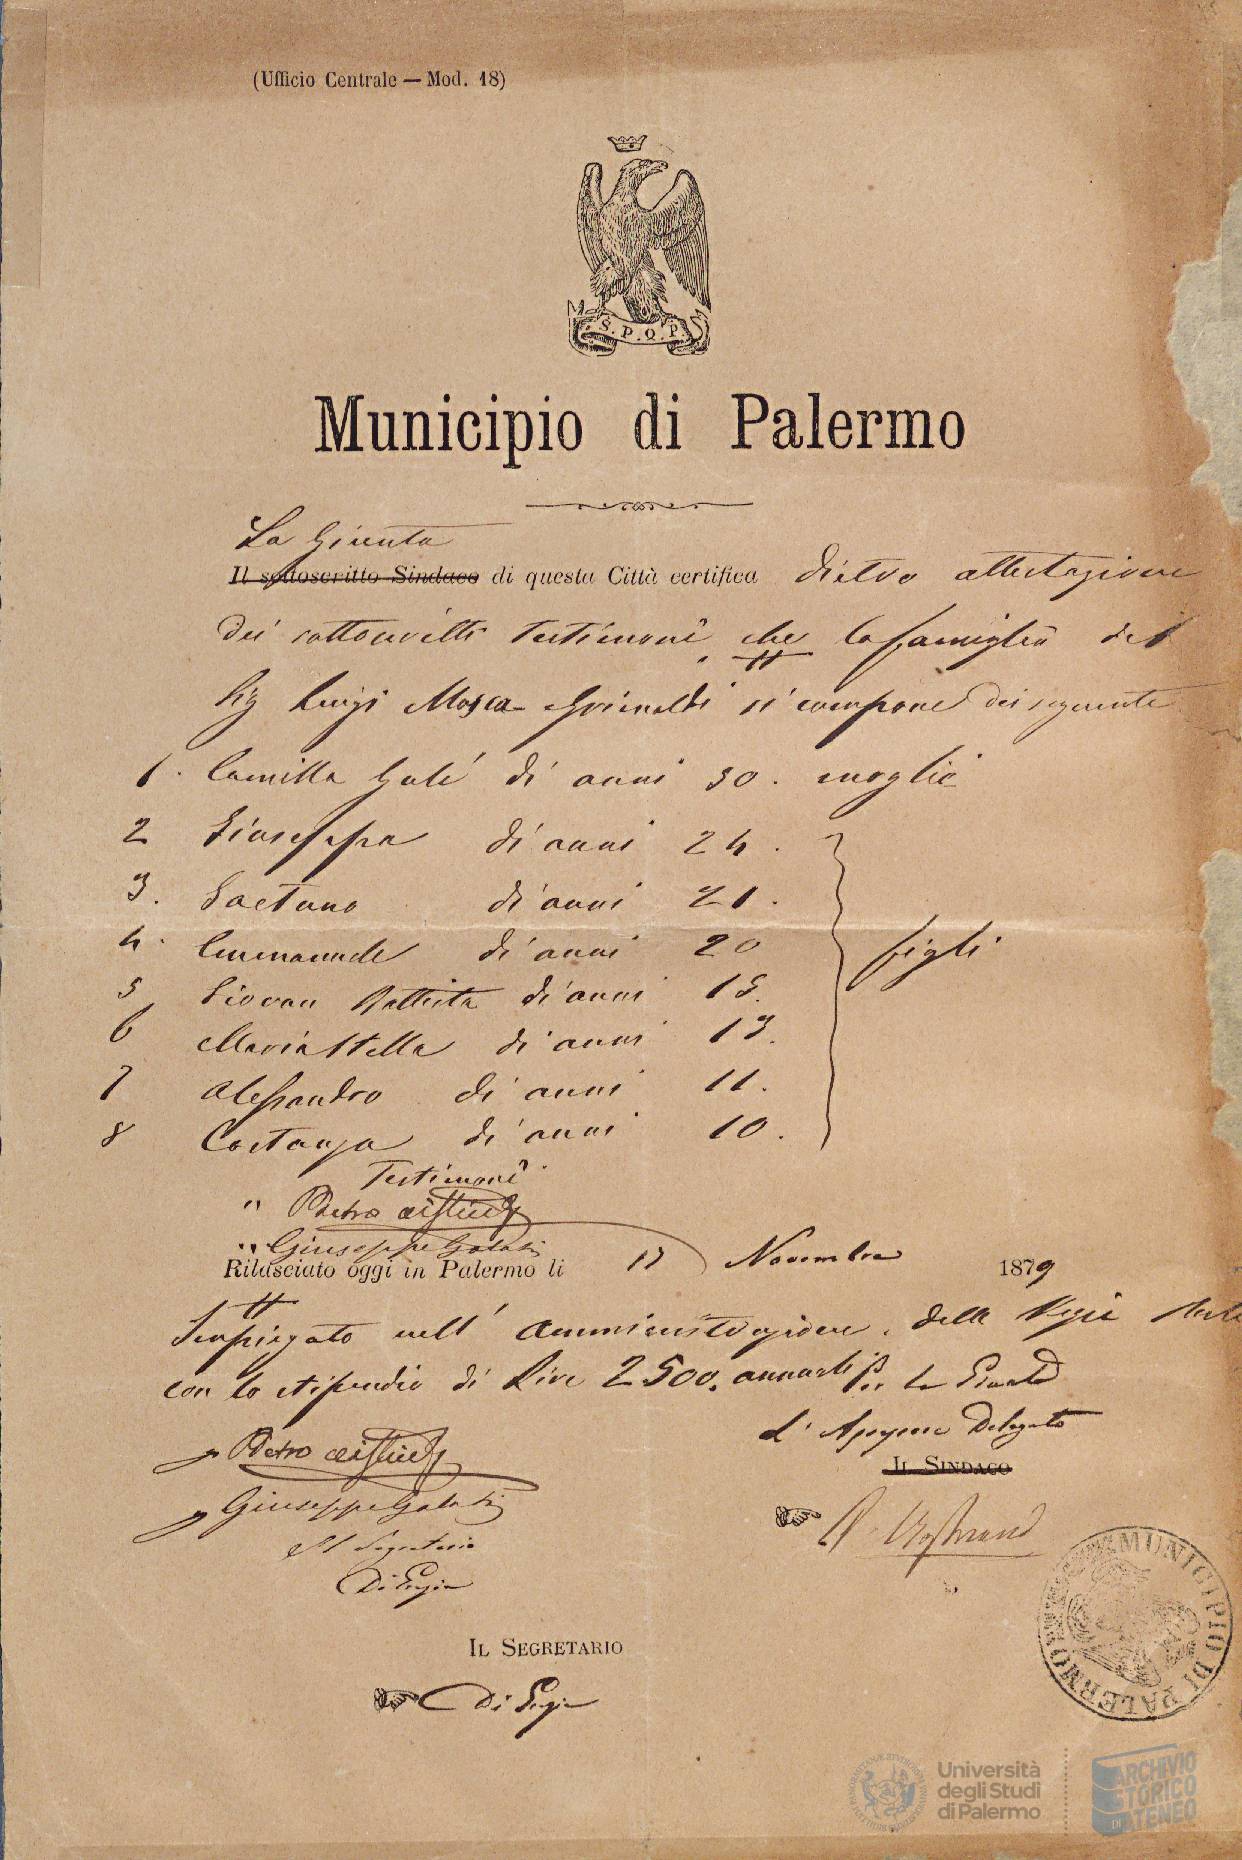 (Ufficio Centrale — Mod. 18)
S. P. Q. P.
Municipio di Palermo
La Giunta
Il sottoscritto Sindaco di questa Città certifica dietro attestazione
dei sottoscritti testimoni che la famiglia del
Sig Luigi Mosca Grimaldi si compone dei seguente
1. Camilla Galé di anni 50. moglie
2 Giuseppa di anni 24.
3. Gaetano di anni 21.
4. Emmanuele di anni 20 figli
5 Giovan Battista di anni 15.
6 Maria Stella di anni 13.
7 Alessandro di anni 11.
8 Costanza di anni 10.
Testimoni
" Pietro
" Giuseppe Galati
Rilasciato oggi in Palermo li 17 Novembre 1879
Impiegato nell' Amministrazione della Regia
con lo stipendio di Lire 2500. annuali Per la Giunta
L'Assessore Delegato
Il Sindaco
Pietro
Giuseppe Galati
Il Segretario
MUNICIPIO DI PALERMO
Il Segretario
Università
degli Studi
di Palermo
ARCHIVIO
STORICO
DI ATENEO